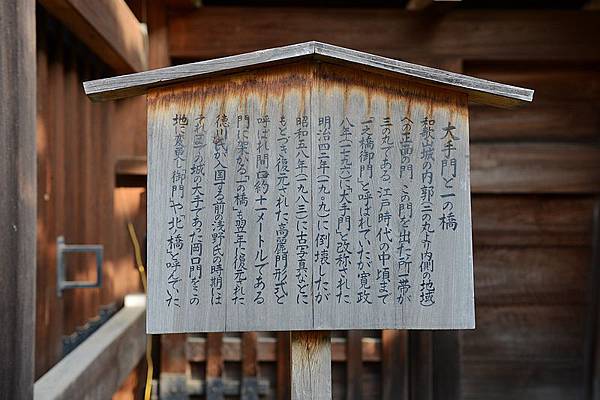 大手門と一の橋
和歌山城の内郭(二の丸より内側の地域)
への正面の門、この門を出た所一帯が
三の丸である 江戸時代の中頃まで
一之橋御門と呼ばれていたが寛政
八年(一七九六)に「大手門」と改称された
明治四二年(一九〇九)に倒壊したが
昭和五八年(一九八三)に古写真などに
もとづき復元された高麗門形式と
呼ばれ間口約十一メートルである
門に架かる「一の橋」も翌年復元された
徳川氏が入国する前の浅野氏の時期には
それ迄の城の大手であった岡口門をこの
地に変更し「御門」や「北橋」と呼んでいた